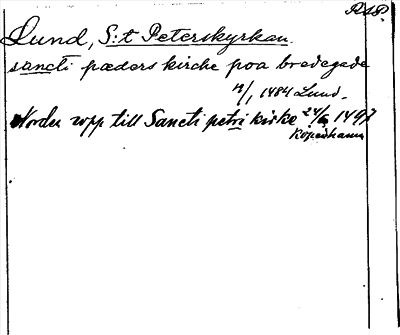 RAP.
Lund, S:t Peterskyrkan.
sancti pæders kirche poa bredegade
12/1 1484 Lund.
Norden upp till Sancti petri kirke 24/6 1497
Köpenhamn